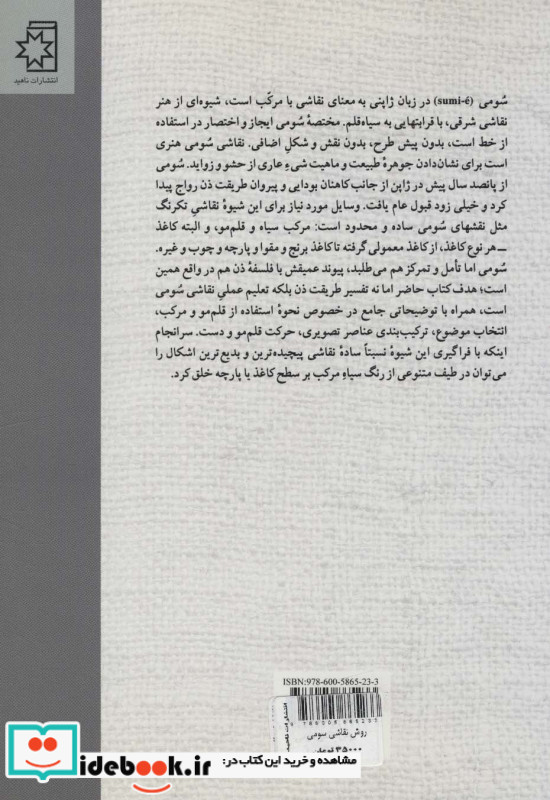 انتشارات ناهید
سُومی (sumi-é) در زبان ژاپنی به معنای نقاشی با مرکّب است، شیوه‌ای از هنر
نقاشی شرقی، با قرابتهایی به سیاه‌قلم. مختصهٔ سُومی ایجاز و اختصار در استفاده
از خط است، بدون پیش طرح، بدون نقش و شکلِ اضافی. نقاشی سُومی هنری
است برای نشان‌دادن جوهرهٔ طبیعت و ماهیت شیءِ عاری از حشو و زواید. سُومی
از پانصد سال پیش در ژاپن از جانب کاهنان بودایی و پیروان طریقت ذن رواج پیدا
کرد و خیلی زود قبول عام یافت. وسایل مورد نیاز برای این شیوهٔ نقاشیِ تکرنگ
مثل نقشهای سُومی ساده و محدود است: مرکب سیاه و قلم‌مو، و البته کاغذ
ــ هر نوع کاغذ، از کاغذ معمولی گرفته تا کاغذ برنج و مقوا و پارچه و چوب و غیره.
سُومی اما تأمل و تمرکز هم می‌طلبد، پیوند عمیقش با فلسفهٔ ذن هم در واقع همین
است؛ هدف کتاب حاضر اما نه تفسیر طریقت ذن بلکه تعلیم عملیِ نقاشی سُومی
است، همراه با توضیحاتی جامع در خصوص نحوهٔ استفاده از قلم‌مو و مرکب،
انتخاب موضوع، ترکیب‌بندی عناصر تصویری، حرکت قلم‌مو و دست. سرانجام
اینکه با فراگیری این شیوهٔ نسبتاً سادهٔ نقاشی پیچیده‌ترین و بدیع‌ترین اشکال را
می‌توان در طیف متنوعی از رنگ سیاهِ مرکب بر سطح کاغذ یا پارچه خلق کرد.
ISBN:978-600-5865-23-3
روش نقاشی سومی
۳۵۰۰۰ تومان
مشاهده و خرید این کتاب در:
idebook.ir